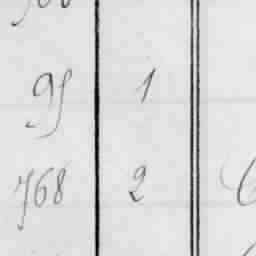 95 1
768 2